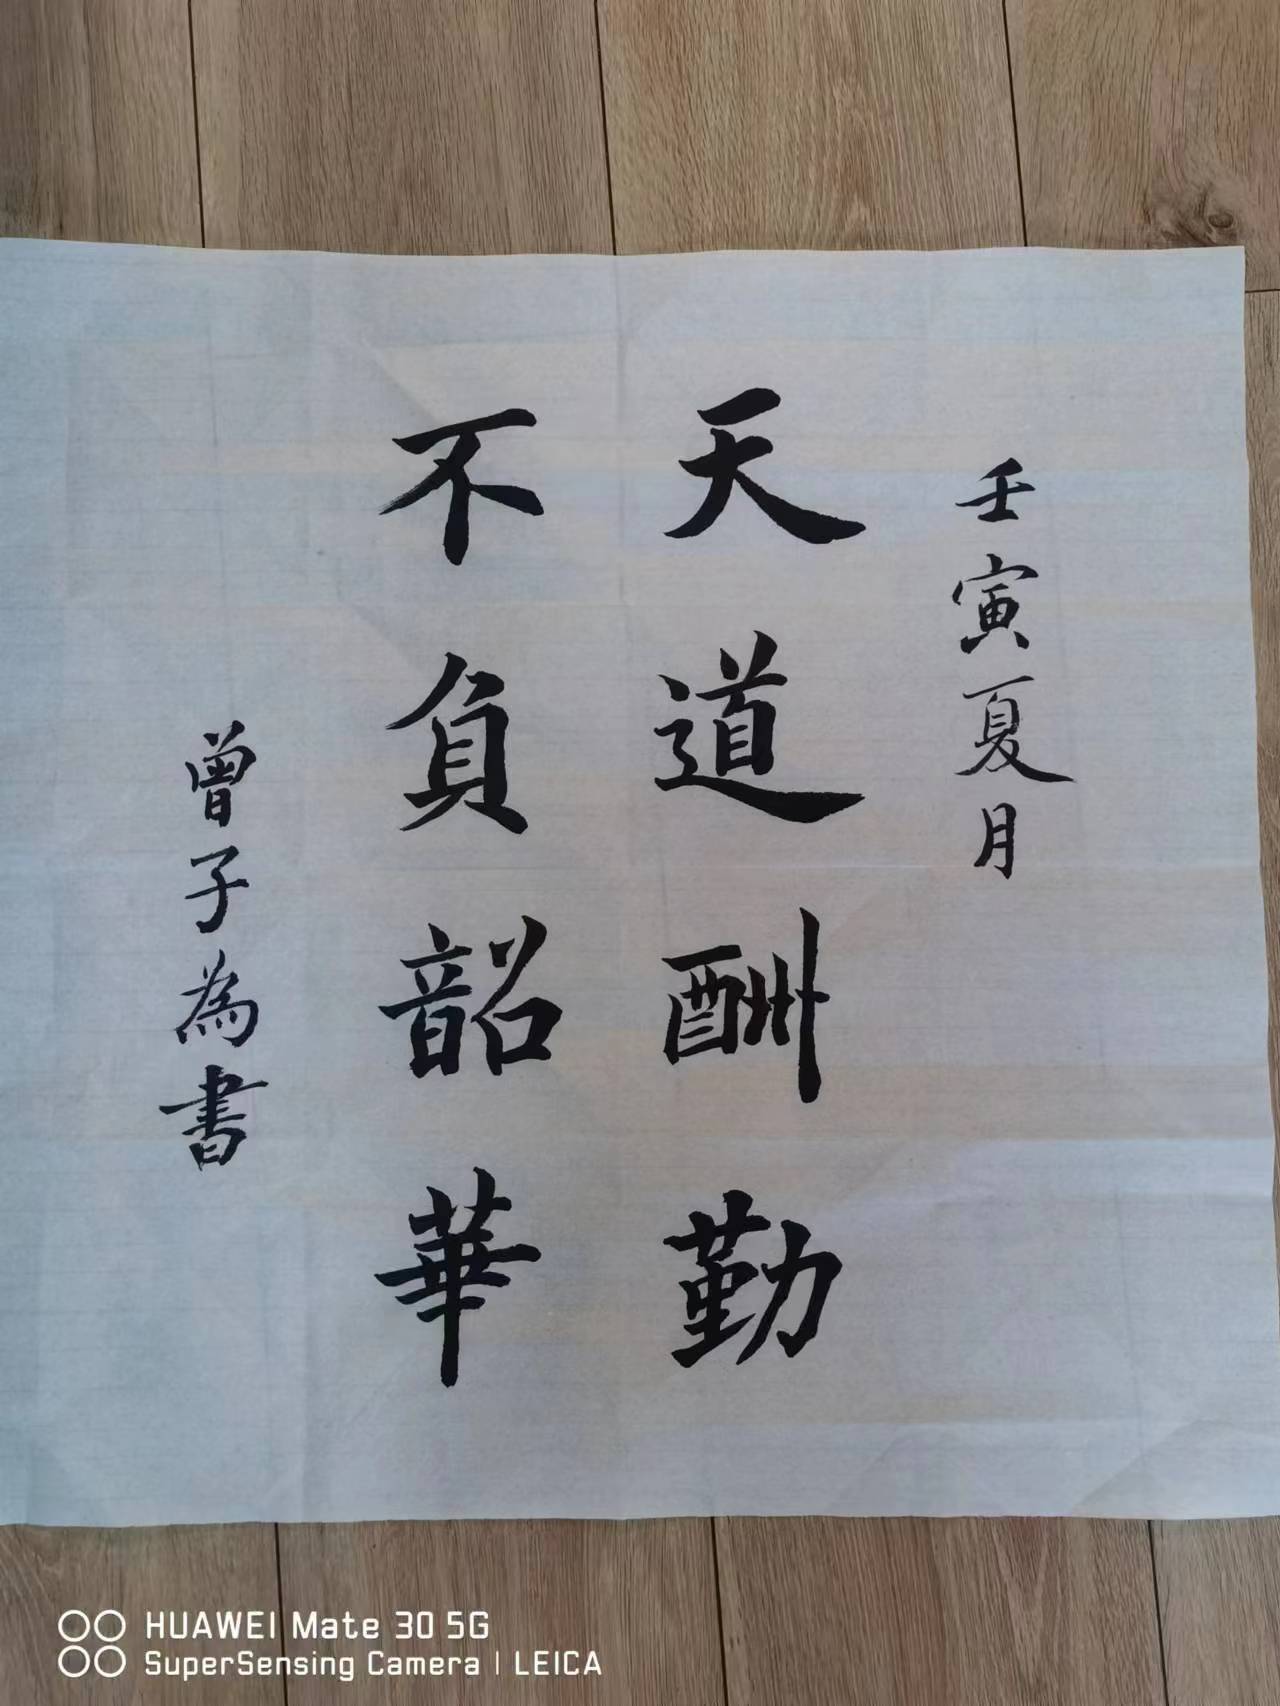 壬寅夏月
天道酬勤
不負韶華
曾子為書
HUAWEI Mate 30 5G
SuperSensing Camera | LEICA